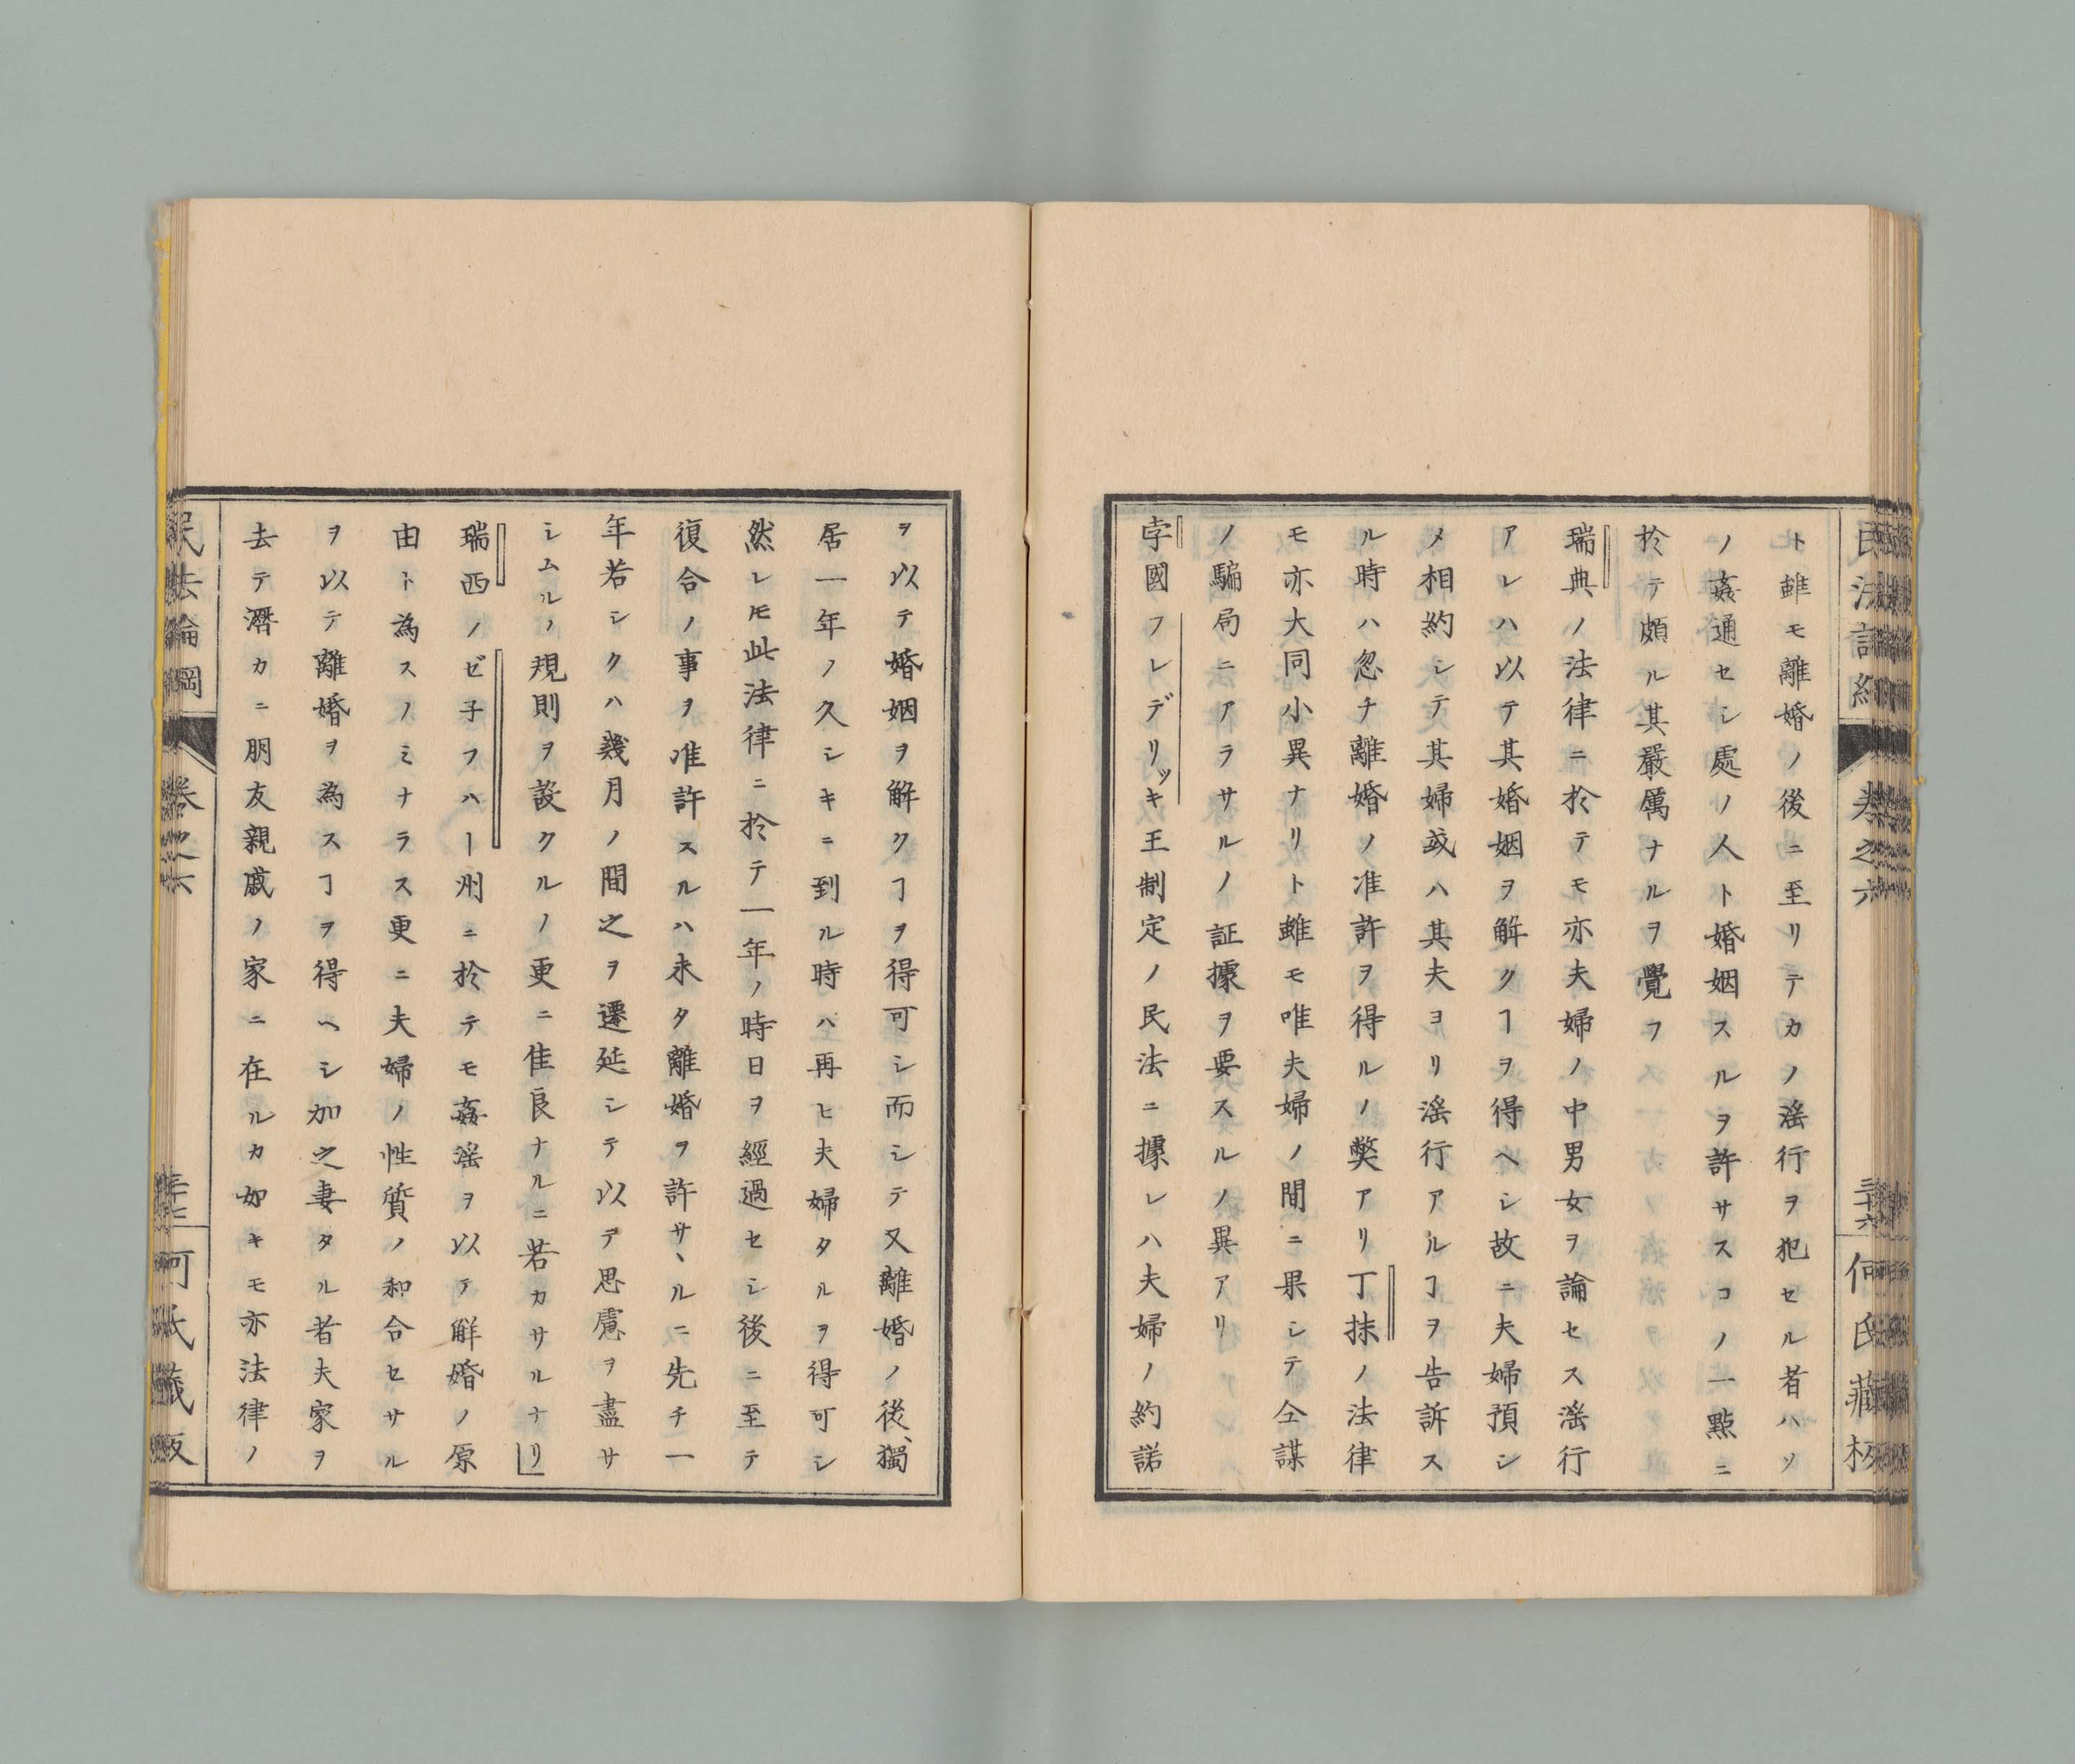 ト雖モ離婚ノ後ニ至リテカノ滛行ヲ犯セル者ハソ
ノ姦通セシ處ノ人ト婚姻スルヲ許サスコノ一點ニ
於テ頗ル其嚴厲ナルヲ覺フ
瑞典ノ法律ニ於テモ亦夫婦ノ中男女ヲ論セス滛行
アレハ以テ其婚姻ヲ解クヿヲ得ヘシ故ニ夫婦預シ
メ相約シテ其婦或ハ其夫ヨリ滛行アルヿヲ告訴ス
ル時ハ忽チ離婚ノ准許ヲ得ルノ獘アリ丁抹ノ法律
モ亦大同小異ナリト雖モ唯夫婦ノ間ニ果シテ仝謀
ノ騙局ニアラサルノ証據ヲ要スルノ異アリ
孛國フレデリッキ王制定ノ民法ニ據レハ夫婦ノ約諾
ヲ以テ婚姻ヲ解クヿヲ得可シ而シテ又離婚ノ後、獨
居一年ノ久シキニ到ル時ハ再ヒ夫婦タルヲ得可シ
然レ𪜈此法律ニ於テ一年ノ時日ヲ經過セシ後ニ至テ
復合ノ事ヲ准許スルハ未タ離婚ヲ許サヽルニ先チ一
年若シクハ幾月ノ間之ヲ遷延シテ以テ思慮ヲ盡サ
シムルノ規則ヲ設クルノ更ニ佳良ナルニ若カサルナリ」
瑞西ノゼ子フハー州ニ於テモ姦滛ヲ以テ解婚ノ原
由ト為スノミナラス更ニ夫婦ノ性質ノ和合セサル
ヲ以テ離婚ヲ為スヿヲ得ヘシ加之妻タル者夫家ヲ
去テ濳カニ朋友親戚ノ家ニ在ルカ如キモ亦法律ノ
民法論綱 卷之六 何氏藏板